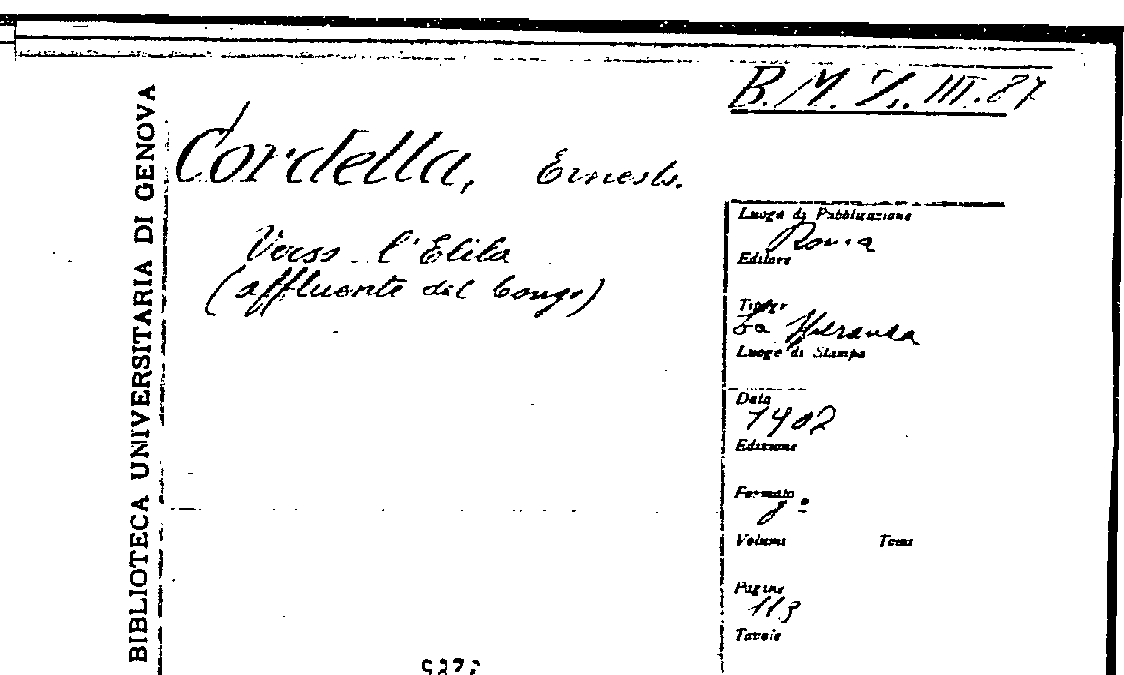 B.M. Z. III. 87
BIBLIOTECA UNIVERSITARIA DI GENOVA
Cordella, Ernesto.
Verso l'Elila
(affluente del Congo)
Luogo di Pubblicazione
Roma
Editore
Tipogr
La Speranza
Luogo di Stampa
Data
1902
Edizione
Formato
8º
Volumi Tomi
Pagine
113
Tavole